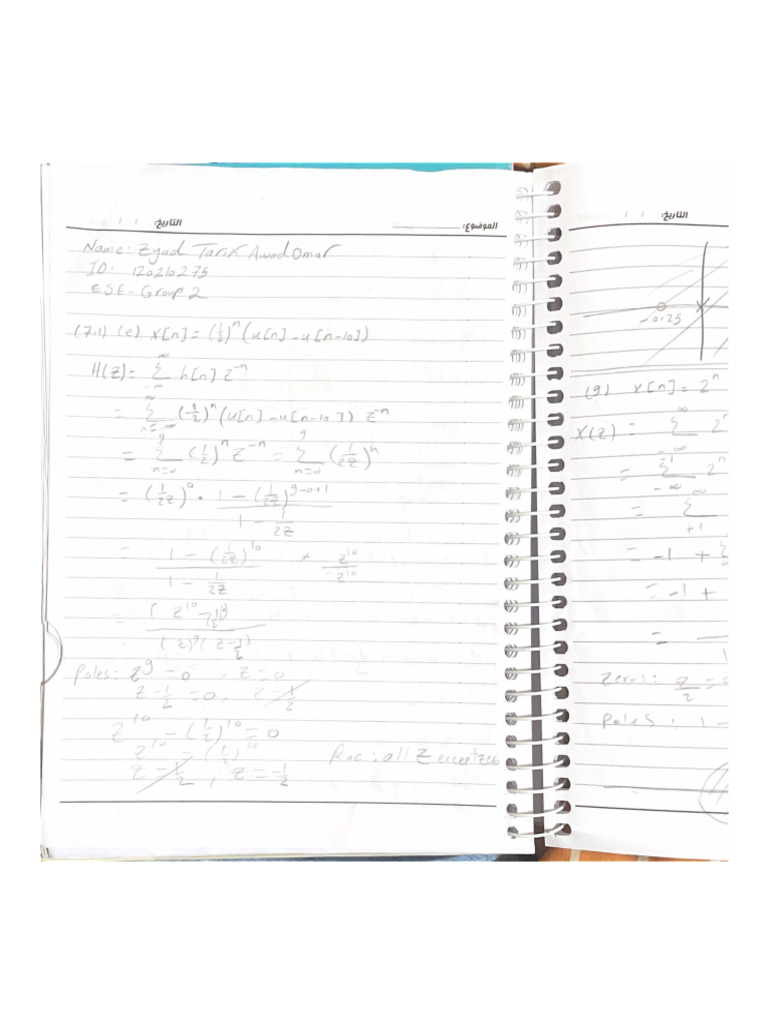 الموضوع: التاريخ: / /
Name: Zyad Tarik Awad Omar
ID: 120210275
ESE - Group 2
(7.1) (e) x[n] = (1/2)^n (u[n] - u[n-10])
H(z) = ∑_{-∞}^{∞} h[n] z^{-n}
= ∑_{n=-∞}^{∞} (1/2)^n (u[n] - u[n-10]) z^{-n}
= ∑_{n=0}^{9} (1/2)^n z^{-n} = ∑_{n=0}^{9} (1/2z)^n
= (1/2z)^0 . (1 - (1/2z)^{9-0+1}) / (1 - 1/2z)
= (1 - (1/2z)^{10}) / (1 - 1/2z) * z^{10}/z^{10}
Poles: z^9 = 0 , z = 0
z - 1/2 = 0, z = 1/2
z^{10} - (1/2)^{10} = 0
z^{10} = (1/2)^{10}
z = 1/2 , z = -1/2
Roc: all z except
التاريخ: / /
-0.25
(g) x[n] = 2^n
X(z) = ∑_{-∞}^{∞} 2^n
= ∑_{-∞} 2^n
= ∑_{+1}^{∞}
= -1 +
= -1 +
=
zeros: z/2 =
Poles: 1 -